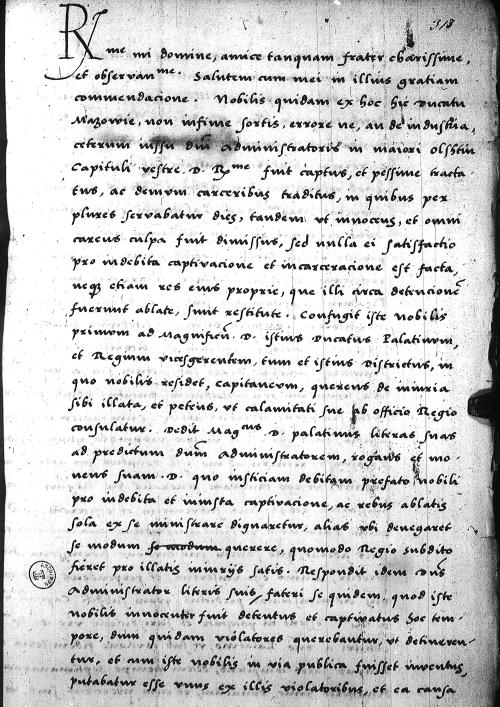 318
Rme mi domine, amice tanquam frater charissime,
et observanme. Salutem cum mei in illius gratiam
commendacione. Nobilis quidam ex hoc Ducatu
Mazowie, non infime sortis, errore ne, an de industria,
ceterum iussu dni Administratoris in maiori olsztin
Capituli vestre. D. Rme fuit captus, et pessime tracta
tus, ac demum carceribus traditus, in quibus per
plures servabatur dies, tandem vt innocens, et omni
careus culpa fuit dimissus, sed nulla ei satisfactio
pro indebita captivacione et incarceracione est facta,
neq etiam res eius proprie, que illi circa detencione
fuerunt ablate, sunt restitute. Confugit iste nobilis
primum ad Magnificu. D. istius Ducatus Palatinum,
et Regium vicesgerentem, tum et istius Districtus, in
quo nobilis residet, Capitaneum, querens de iniuria
sibi illata, et petens, vt calamitati sue ab officio Regio
consulatur. Dedit Magcus D. palatinus literas suas
ad predictum dnm Administratorem, rogans et mo-
nens suam. D. quo iusticiam debitam prefato nobili
pro indebita et iniusta captivacione, ac rebus ablatis
sola ex se ministrare dignaretur, alias vbi denegaret
se modum se modum querere, quomodo Regio subdito
fieret pro illatis iniurijs satis. Respondit idem Dns
Administrator literis suis, fateri se quidem, quod iste
nobilis innocenter fuit detentus et captivatus hoc tem-
pore, dum quidam violatores querebantur, vt detineren-
tur, et cum iste nobilis in via publica fuisset inventus,
putabatur esse vnus ex illis violatoribus, et ea causa